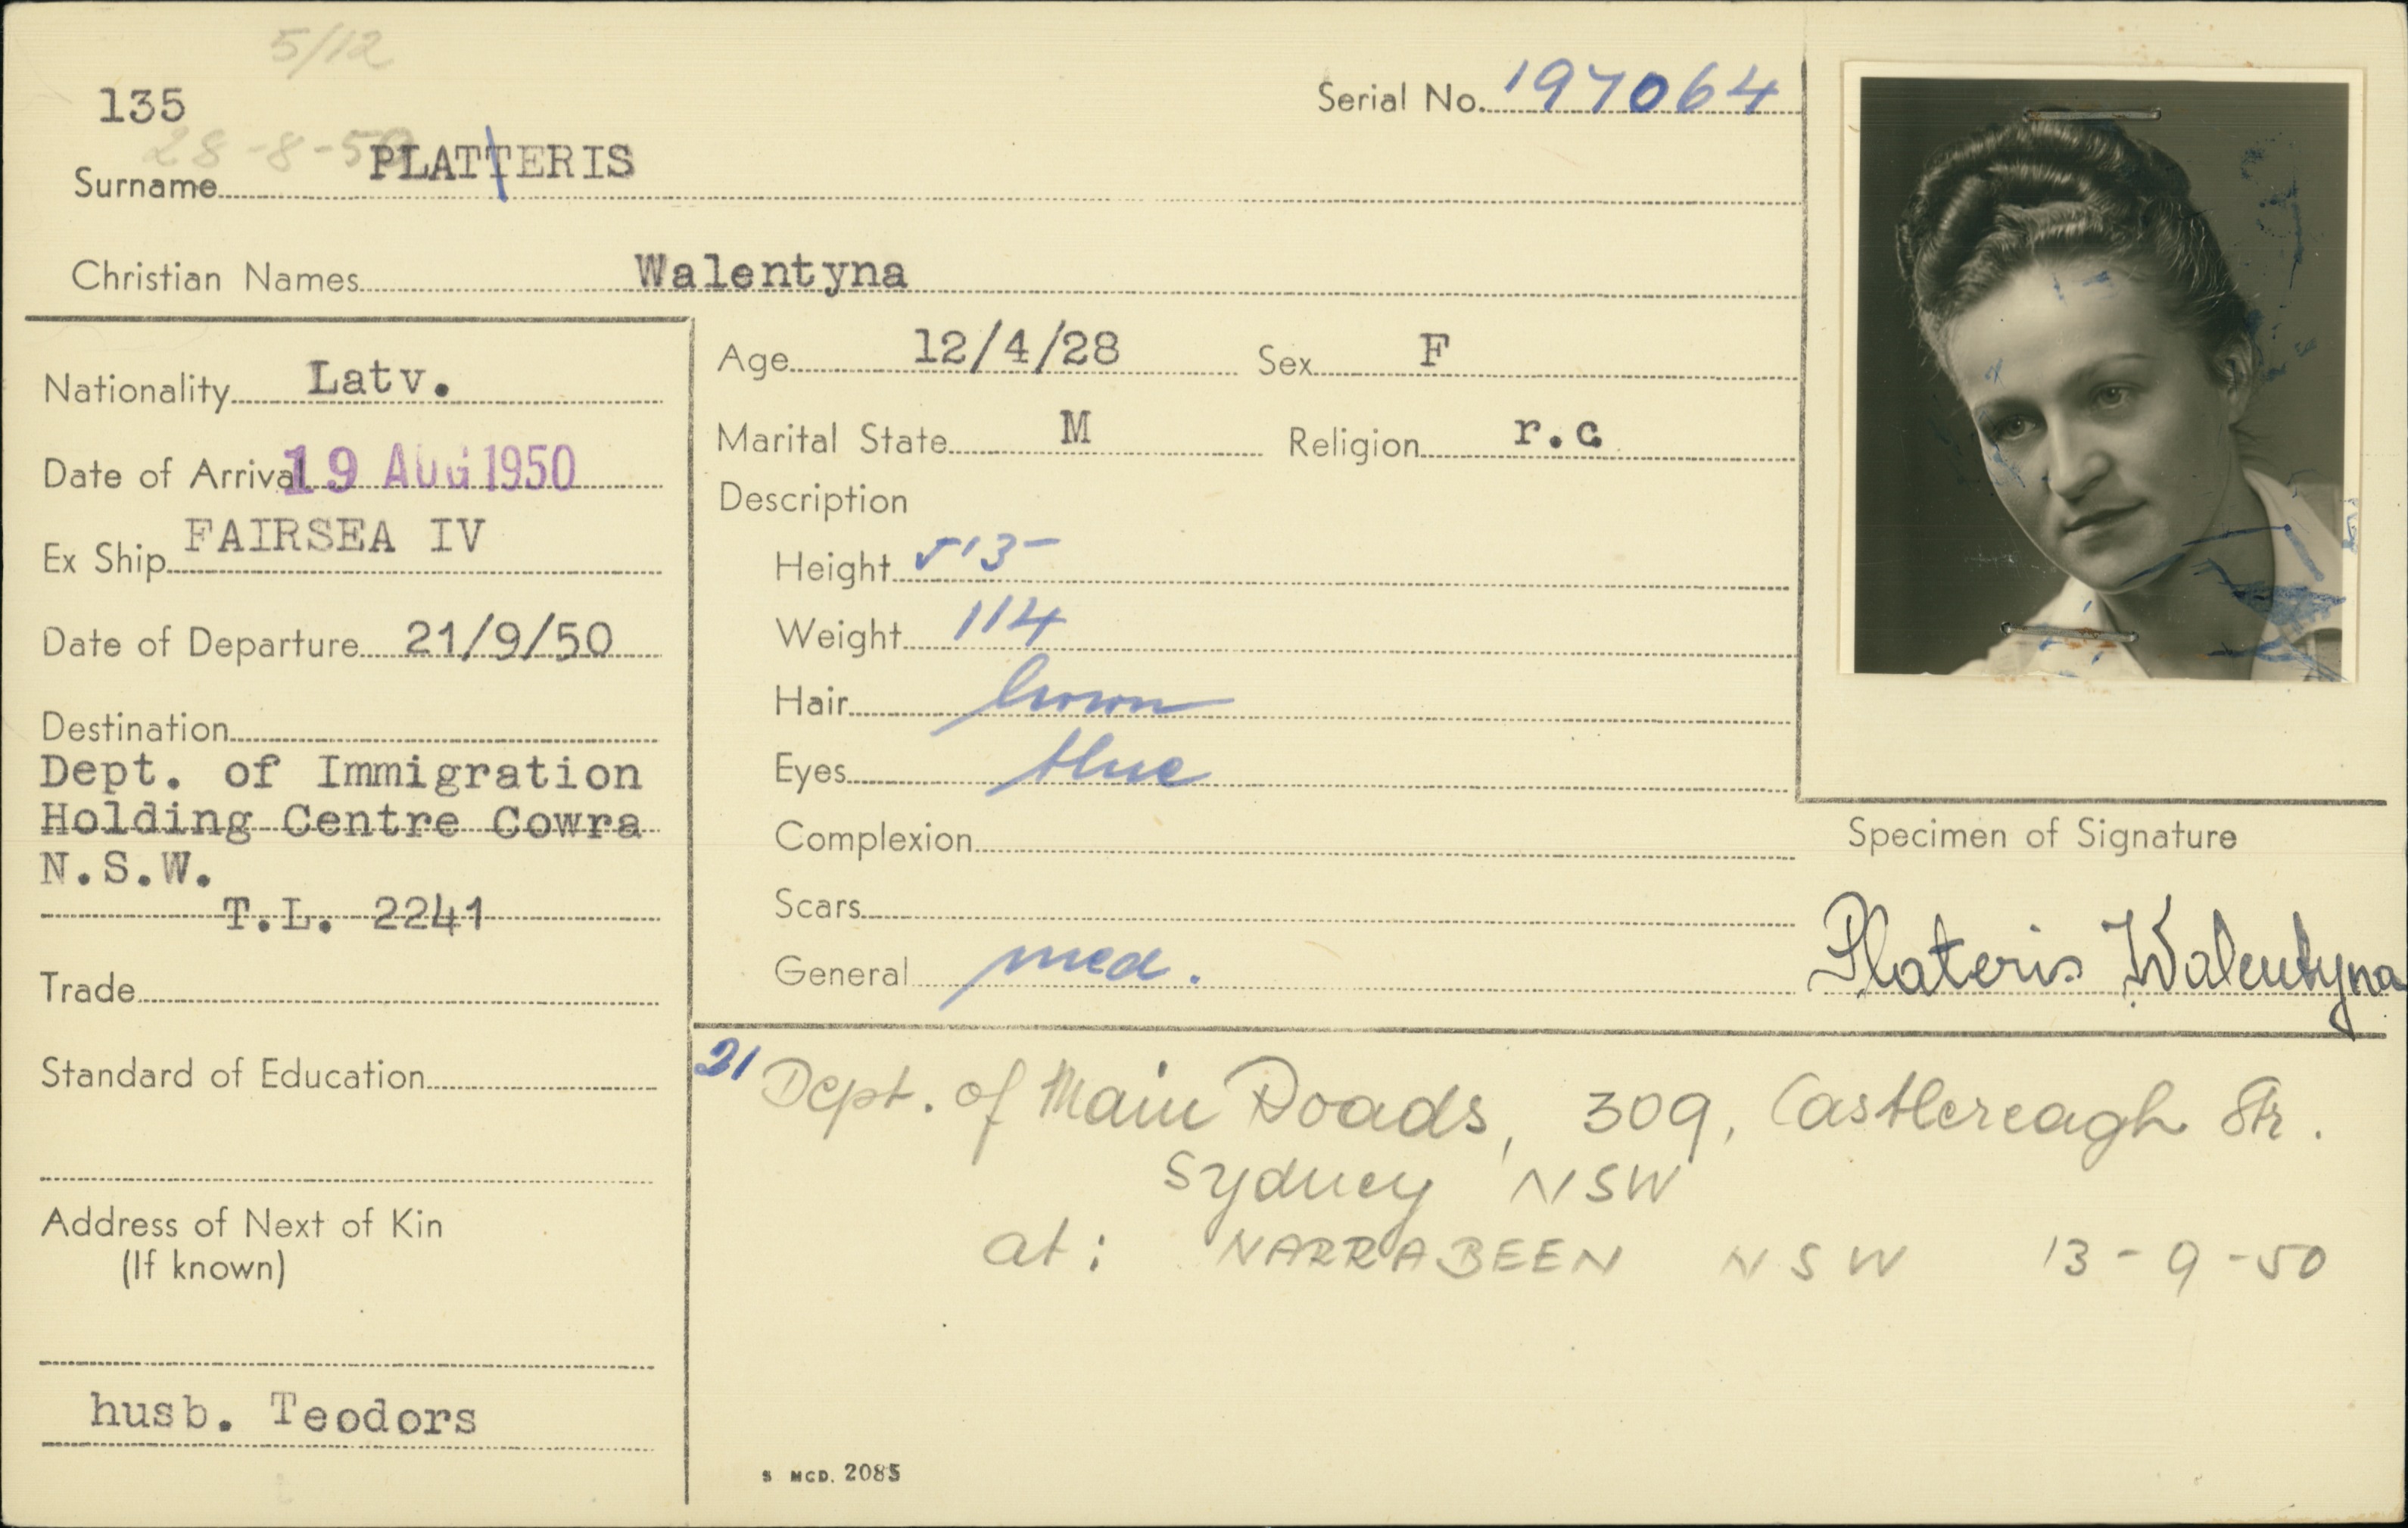 5/12
135
Serial No. 197064
28-8-50
Surname PLATTERIS
Christian Names Walentyna
Nationality Latv.
Date of Arrival 19 AUG 1950
Ex Ship FAIRSEA IV
Date of Departure 21/9/50
Destination
Dept. of Immigration
Holding Centre Cowra
N.S.W.
T.L. 2241
Trade
Standard of Education
Address of Next of Kin
(If known)
husb. Teodors
Age 12/4/28 Sex F
Marital State M Religion r.c.
Description
Height 5'3-
Weight 114
Hair brown
Eyes blue
Complexion
Scars
General med.
Specimen of Signature
Plateris Walentyna
21 Dept. of Main Roads, 309, Castlereagh Str.
Sydney NSW
at: NARRABEEN NSW 13-9-50
S MCD. 2085